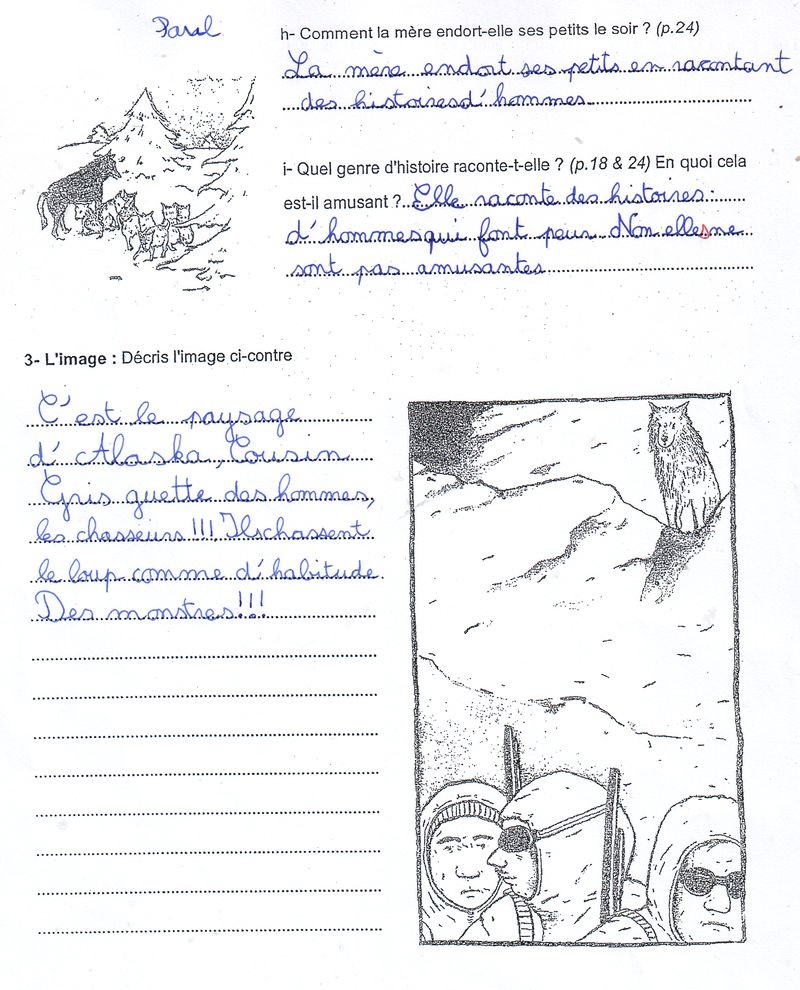 Paral
h- Comment la mère endort-elle ses petits le soir ? (p.24)
La mère endort ses petits en racontant
des histoires d'hommes.
i- Quel genre d'histoire raconte-t-elle ? (p.18 & 24) En quoi cela
est-il amusant ? Elle raconte des histoires
d'hommes qui font peur. Non elles ne
sont pas amusantes
3- L'image : Décris l'image ci-contre
C'est le paysage
d'Alaska, Cousin
Gris guette des hommes,
les chasseurs !!! Ils chassent
le loup comme d'habitude.
Des monstres!!!